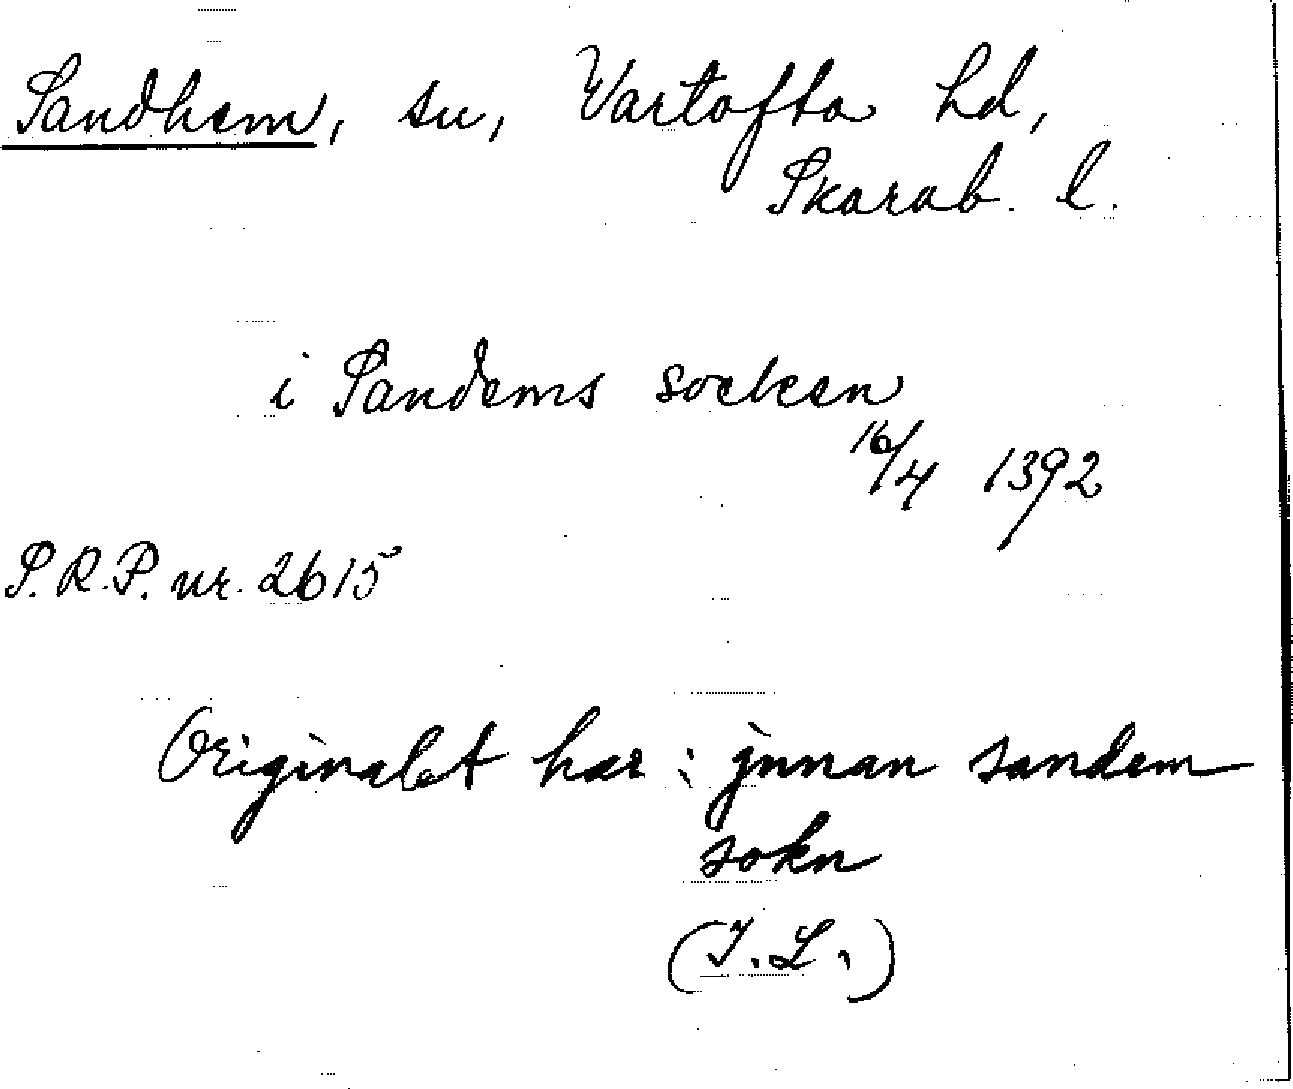 Sandhem, sn, Vartofta hd,
Skarab. l.
i Sandems socken
16/4 1392
S.R.P. nr. 2615
Originalet har: jnnan sandem
sokn
(I.L.)